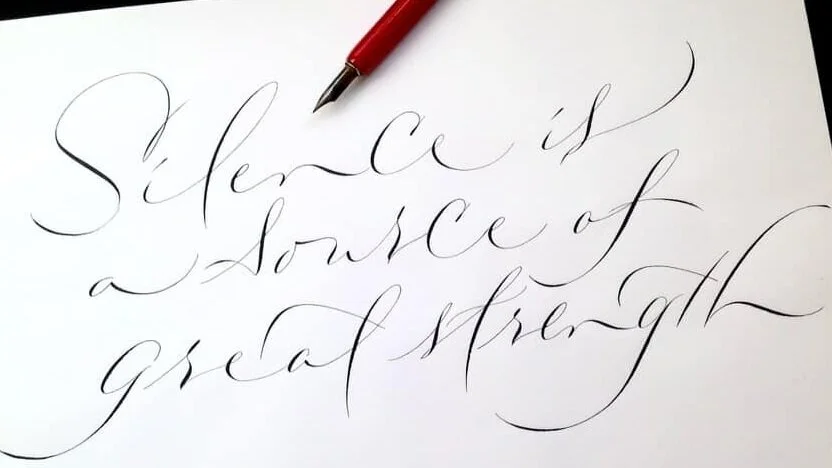 Silence is
a source of
great strength